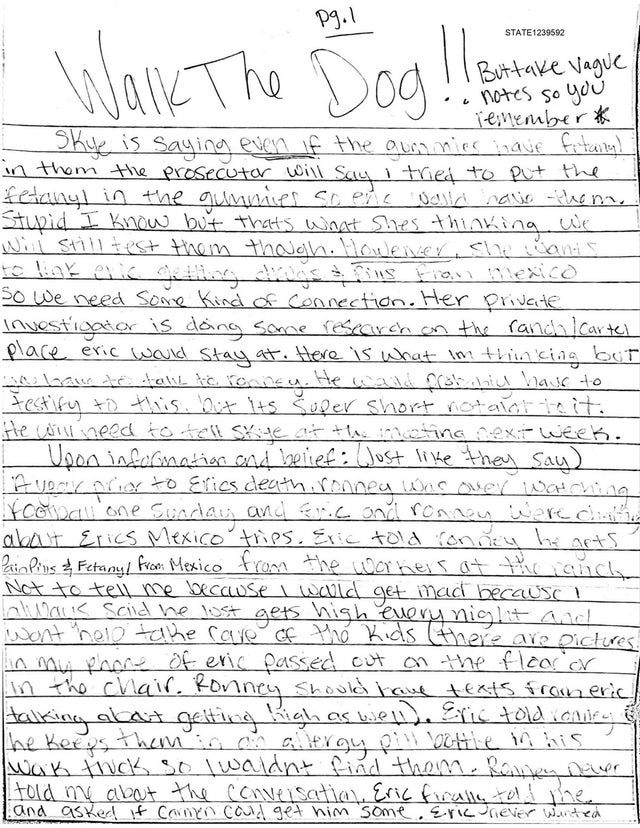 pg.1
STATE1239592
Walk The Dog!!
But take vague
notes so you
remember *
Skye is saying even if the gummies have fetanyl
in them the prosecutor will say I tried to put the
fetanyl in the gummies so eric would have them.
Stupid I know but thats what shes thinking. We
will still test them though. However, she wants
to link eric getting drugs & pills from mexico
So we need some kind of connection. Her private
investigator is doing some research on the ranch/cartel
place eric would stay at. Here is what im thinking but
you have to talk to ronney. He would probably have to
testify to this, but its super short not alot to it.
He will need to tell Skye at the meeting next week.
Upon information and belief: (Just like they say)
A year prior to Erics death, ronney was over watching
football one Sunday and Eric and ronney were chatting
about Erics Mexico trips. Eric told ronney he gets
Pain Pills & Fetanyl from Mexico from the workers at the ranch.
Not to tell me because I would get mad because I
always said he just gets high every night and
wont help take care of the kids (there are pictures
in my phone of eric passed out on the floor or
in the chair. Ronney should have texts from eric
talking about getting high as well). Eric told ronney
he keeps them in an allergy pill bottle in his
work truck so I wouldnt find them. Ronney never
told me about the conversation, Eric finally told me
and asked if Carmen could get him some. Eric never wanted